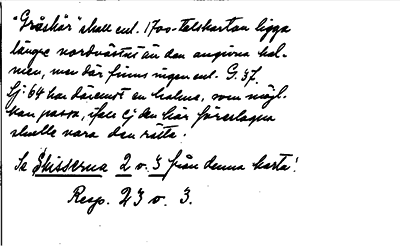 "Gråskär" skall enl. 1700-talskartan ligga
längre nordväst ut än den angivna hol-
men, men där finns ingen enl. G. 37.
Lj. 64 har däremot en holme, som möjl.
kan passa, ifall ej den här föreslagna
skulle vara den rätta.
Se Skisserna 2 o. 3 från denna karta!
Resp. 23 o. 3.